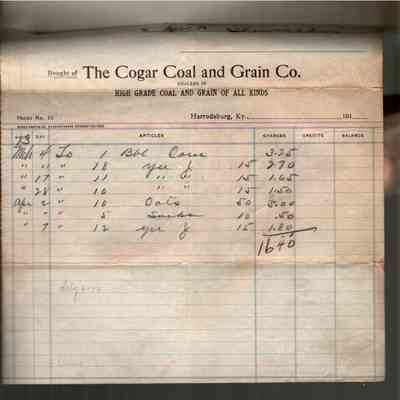 Bought of The Cogar Coal and Grain Co.
DEALERS IN
HIGH GRADE COAL AND GRAIN OF ALL KINDS
Harrodsburg, Ky., 191
ARTICLES CHARGES CREDITS BALANCE
13
Mch 4 To 1 Bbl Corn 3.25
" " " 18 15 2.70
" 17 " 11 " " 15 1.65
" 28 " 10 " " 15 1.50
Apr 2 " 10 Oats 50 5.00
" " " 5 Sacks 10 .50
" 7 " 12 15 1.80
16 40